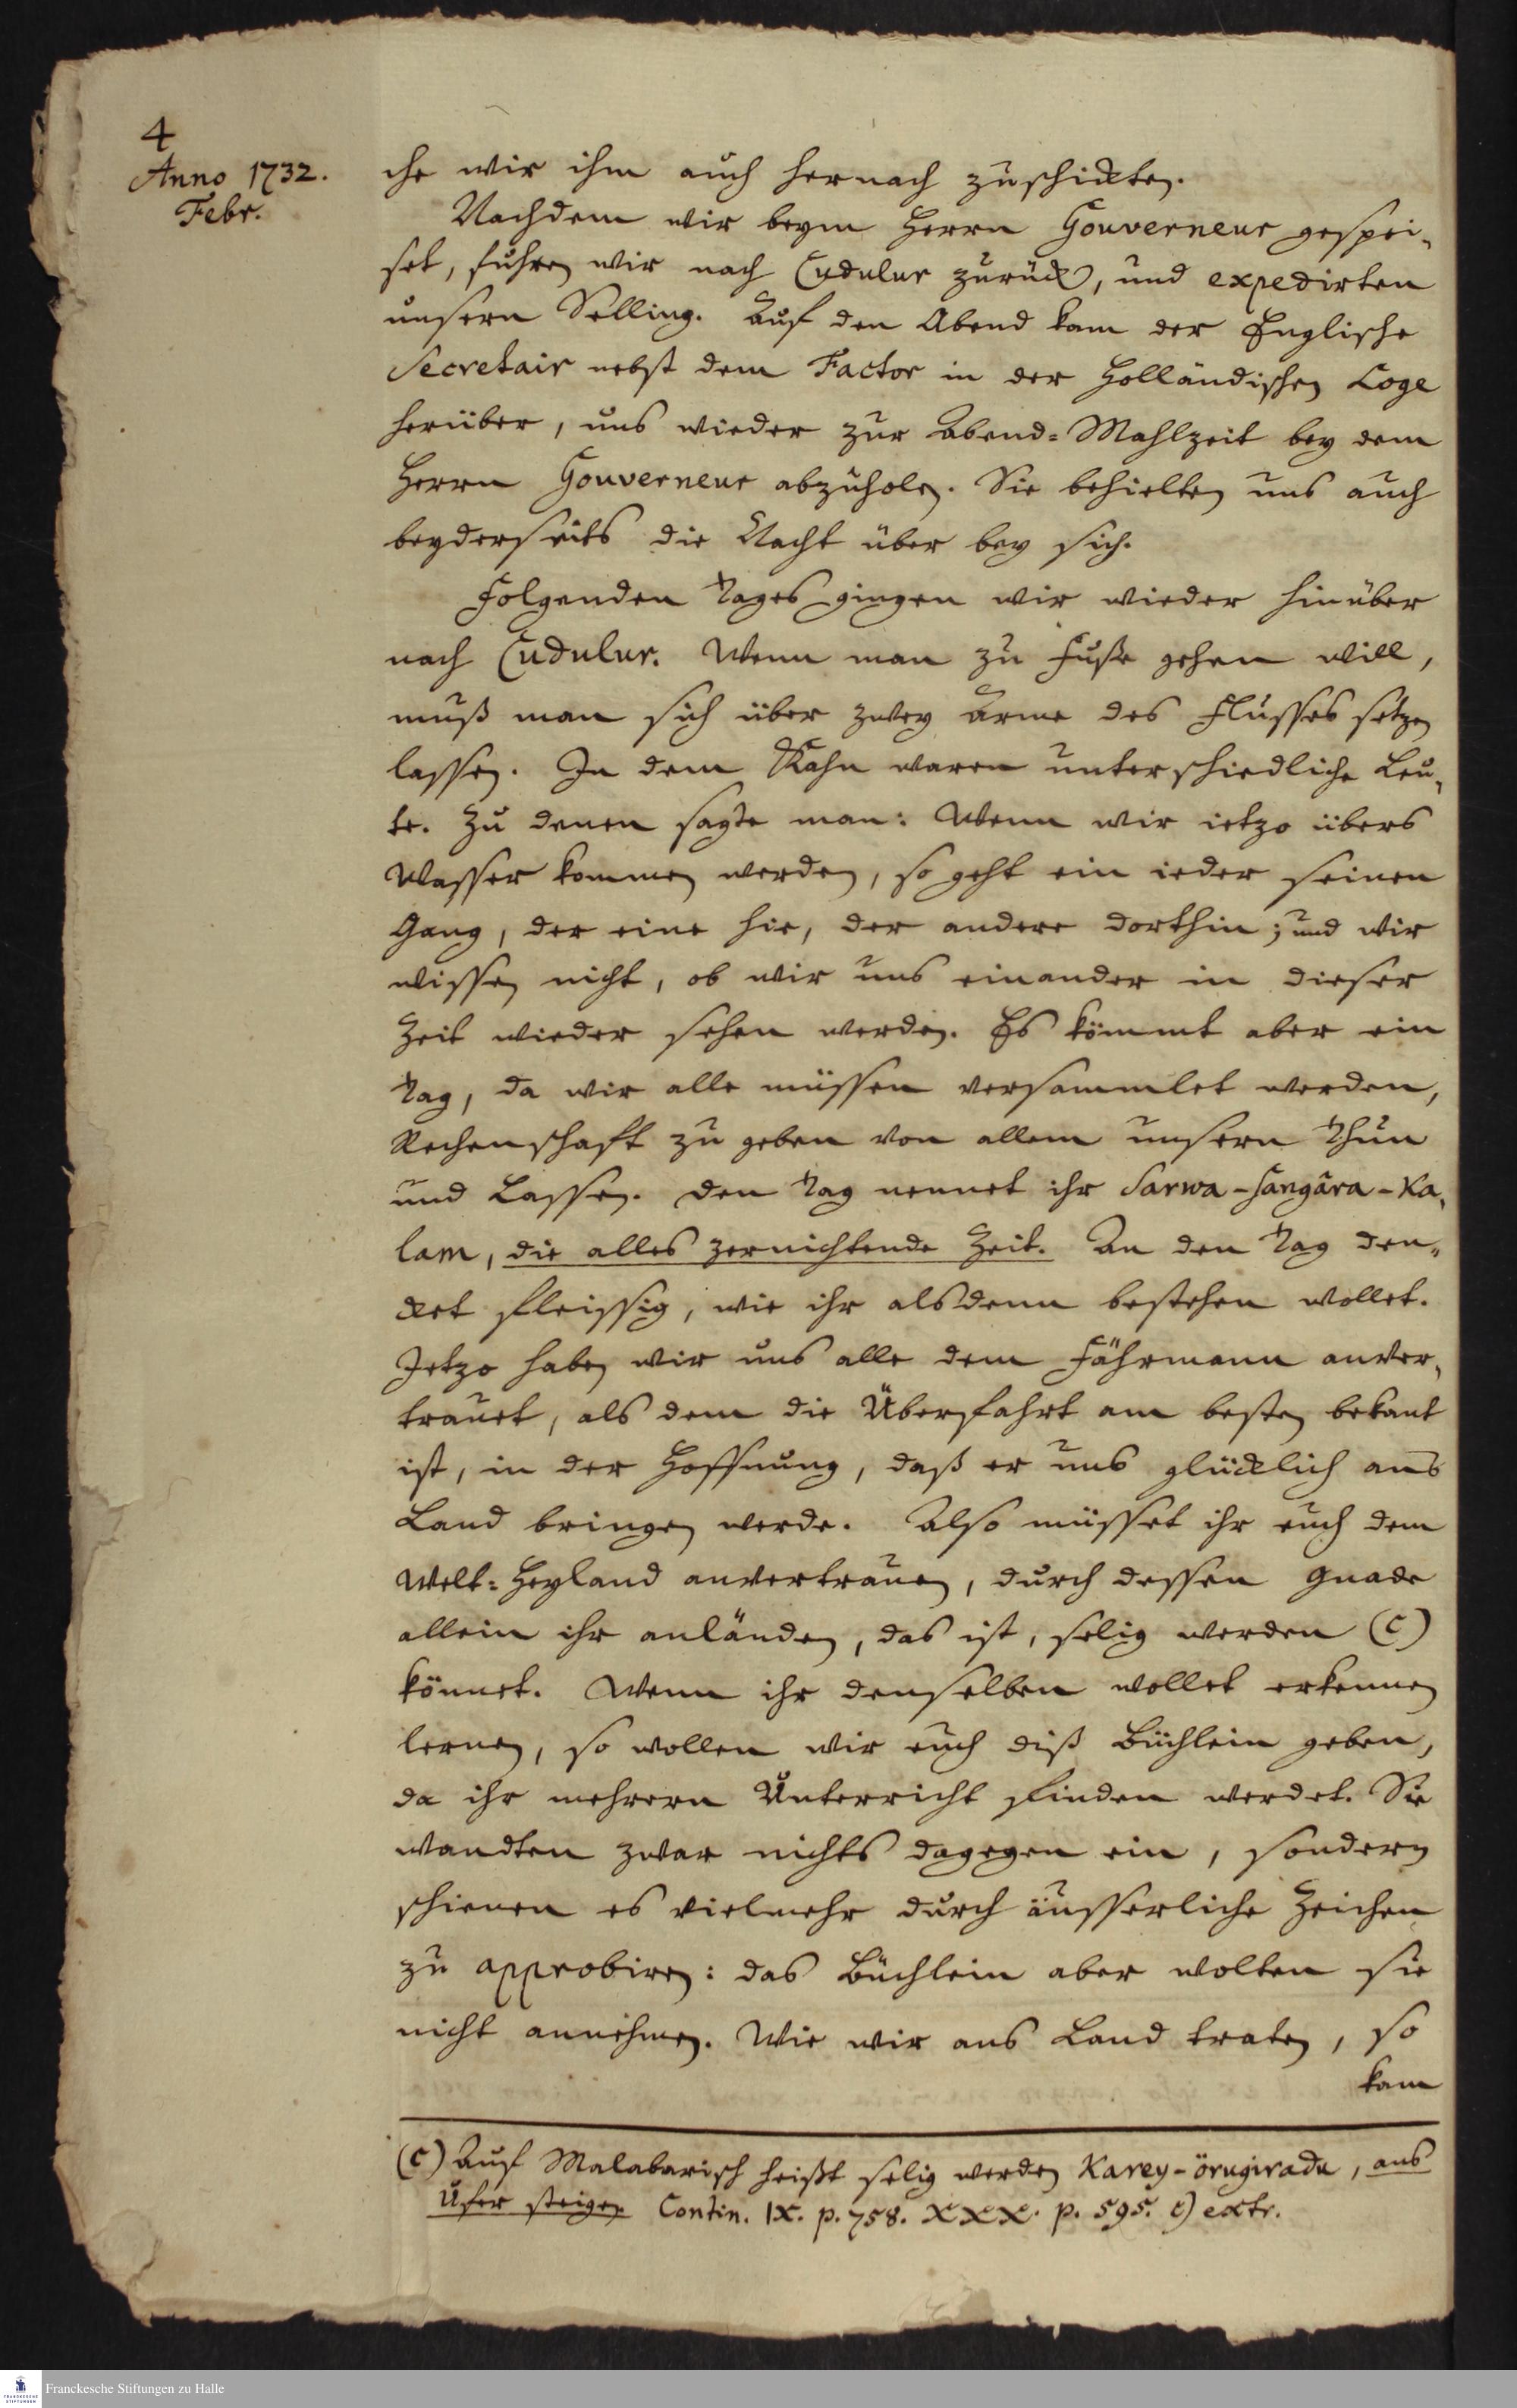 4
Anno 1732.
Febr.
che wir ihm auch hernach zuschickten.
Nachdem wir beym Herrn Gouverneur gespei-
set, fuhren wir nach Cudulur zurück, und expedirten
unsern Selling. Auf den Abend kam der Englische
Secretair nebst dem Factor in der Holländischen Loge
herüber, uns wieder zur Abend-Mahlzeit bey dem
Herrn Gouverneur abzuholen. Sie behielten uns auch
beyderseits die Nacht über bey sich.
Folgenden Tages gingen wir wieder hinüber
nach Cudulur. Wenn man zu Fuße gehen will,
muß man sich über zwey Arme des Flusses setzen
lassen. In dem Kahn waren unterschiedliche Leu-
te. Zu denen sagte man: Wenn wir ietzo übers
Wasser kommen werden, so geht ein ieder seinen
Gang, der eine hie, der andere dorthin; und wir
wissen nicht, ob wir uns einander in dieser
Zeit wieder sehen werden. Es kömmt aber ein
Tag, da wir alle müssen versammlet werden,
Rechenschaft zu geben von allem unsern Thun
und Lassen. Den Tag nennet ihr Sarwa-sangâra-Ka-
lam, die alles zernichtende Zeit. An den Tag den-
cket fleissig, wie ihr alsdenn bestehen wollet.
Jetzo haben wir uns alle dem Fährmann anver-
trauet, als dem die Überfahrt am besten bekant
ist, in der Hoffnung, daß er uns glücklich ans
Land bringen werde. Also müsset ihr euch dem
Welt-Heyland anvertrauen, durch dessen Gnade
allein ihr anländen, das ist, selig werden (c)
könnet. Wenn ihr denselben wollet erkennen
lernen, so wollen wir euch diß Büchlein geben,
da ihr mehrern Unterricht finden werdet. Sie
wandten zwar nichts dagegen ein, sondern
schienen es vielmehr durch äusserliche Zeichen
zu approbiren: das Büchlein aber wolten sie
nicht annehmen. Wie wir ans Land traten, so
kam
(c) Auf Malabarisch heißt selig werden Karey-örugiradu, ans
Ufer steigen Contin. IX. p. 758. XXX. p. 595. c) extr.
Franckesche Stiftungen zu Halle